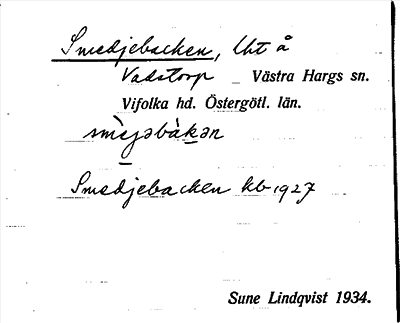 Smedjebacken, Uht å
Vadstorp Västra Hargs sn.
Vifolka hd. Östergötl. län.
smèjəbàkən
Smedjebacken kb 1927
Sune Lindqvist 1934.